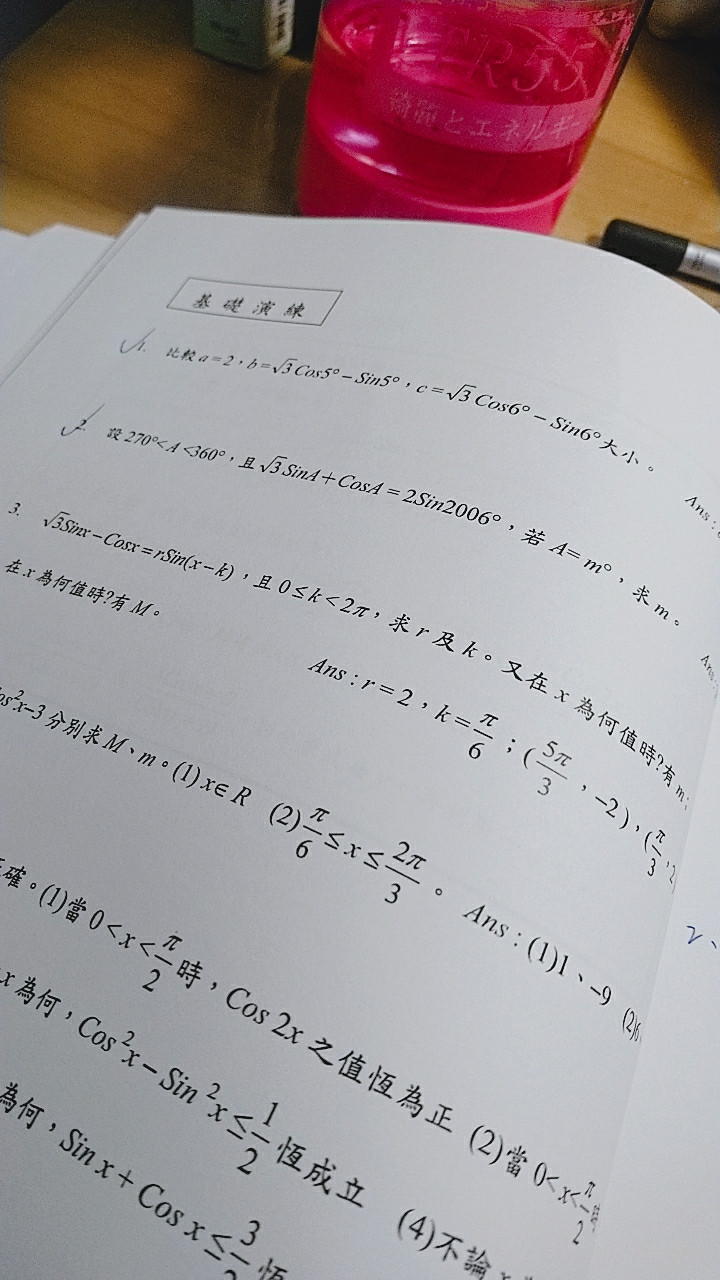 ER55
綺麗とエネルギー
基礎演練
1. 比較 a=2,b=√3Cos5°−Sin5°,c=√3Cos6°−Sin6°大小。
Ans:
2. 設 270°<A<360°,且 √3SinA+CosA=2Sin2006°,若 A=m°,求 m。
Ans:
3. √3Sinx−Cosx=rSin(x−k),且 0≤k<2π,求 r 及 k。又在 x 為何值時?有 m;
在 x 為何值時?有 M。
Ans:r=2,k=π/6;(5π/3,−2),(π/3,2
os²x−3 分別求 M、m。(1) x∈R (2) π/6≤x≤2π/3。 Ans:(1)1、−9 (2)
確。(1)當 0<x<π/2 時,Cos 2x 之值恆為正 (2)當 0<x<π/2 時
x 為何,Cos²x−Sin²x≤1/2 恆成立 (4)不論 x
為何,Sin x+Cos x≤3/2 恆